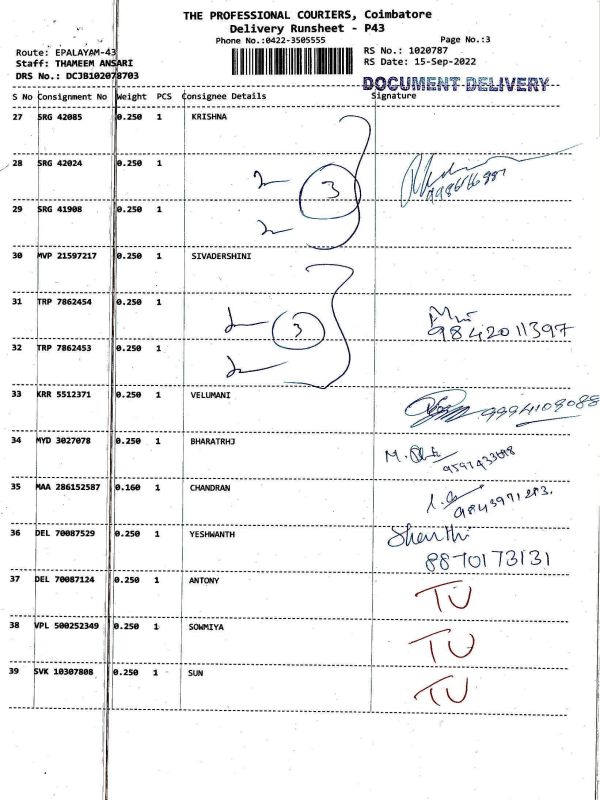 THE PROFESSIONAL COURIERS, Coimbatore
Delivery Runsheet - P43
Phone No.:0422-3505555 Page No.:3
Route: EPALAYAM-43 RS No.: 1020787
Staff: THAMEEM ANSARI RS Date: 15-Sep-2022
DRS No.: DCJB102078703 DOCUMENT DELIVERY
S No Consignment No Weight PCS Consignee Details Signature
27 SRG 42085 0.250 1 KRISHNA
28 SRG 42024 0.250 1
3
29 SRG 41908 0.250 1
30 MVP 21597217 0.250 1 SIVADERSHINI
31 TRP 7862454 0.250 1
3 9842011397
32 TRP 7862453 0.250 1
33 KRR 5512371 0.250 1 VELUMANI
9994109088
34 MYD 3027078 0.250 1 BHARATRHJ
M.
35 MAA 286152587 0.160 1 CHANDRAN
36 DEL 70087529 0.250 1 YESHWANTH Shanthi
8870173131
37 DEL 70087124 0.250 1 ANTONY TU
38 VPL 500252349 0.250 1 SOWMIYA TU
39 SVK 10307808 0.250 1 SUN TU